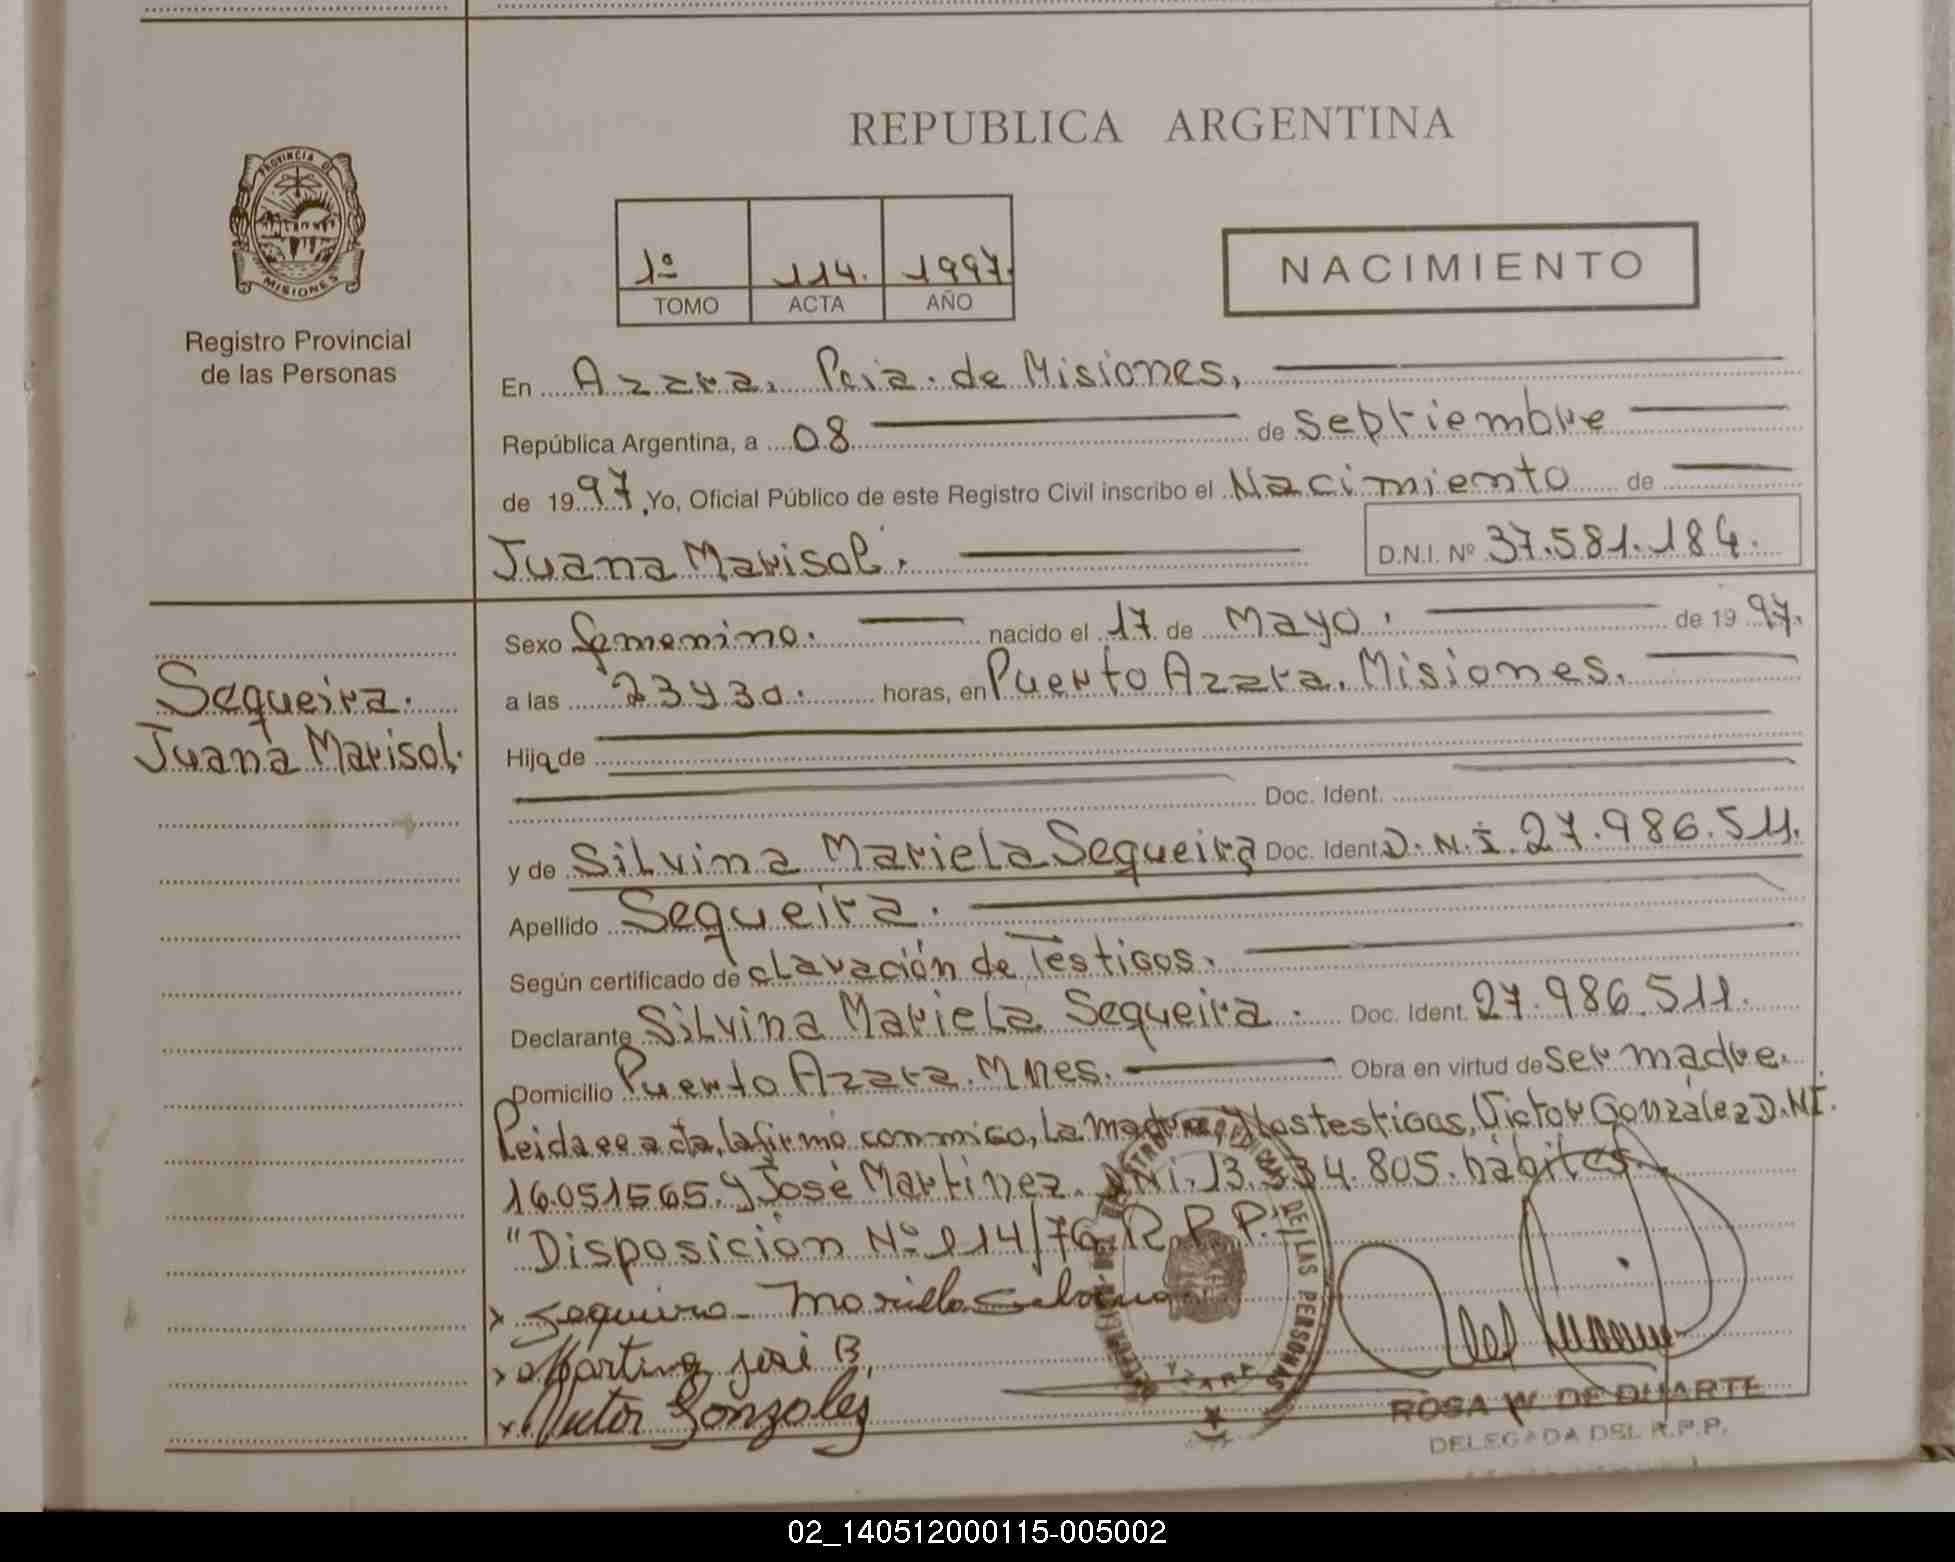 REPUBLICA ARGENTINA
PROVINCIA DE
MISIONES
Registro Provincial
de las Personas
1º 114. 1997.
TOMO ACTA AÑO
NACIMIENTO
En Azara, Pcia. de Misiones,
República Argentina, a 08 de septiembre
de 1997, Yo, Oficial Público de este Registro Civil inscribo el Nacimiento de
Juana Marisol. D.N.I. Nº 37.581.184.
Sequeira.
Juana Marisol.
Sexo femenino. nacido el 17 de Mayo. de 1997.
a las 23 y 30. horas, en Puerto Azara, Misiones.
Hija de
Doc. Ident.
y de Silvina Mariela Sequeira Doc. Ident. D.N.I. 27.986.511.
Apellido Sequeira.
Según certificado de claración de Testigos.
Declarante Silvina Mariela Sequeira. Doc. Ident. 27.986.511.
Domicilio Puerto Azara. Mnes. Obra en virtud de ser madre.
Leida el acta, la firmó conmigo, La madre y los testigos, Victor González D.NI.
16.051565. y José Martinez. DNi. 13.334.805. hábiles.
"Disposición Nº 114/76 R.P.P."
x Sequeira Mariela Silvina
x Martinez José B.
x Victor Gonzalez
DE LAS PERSONAS
AZARA
ROSA W. DE DUARTE
DELEGADA DEL R.P.P.
02_140512000115-005002